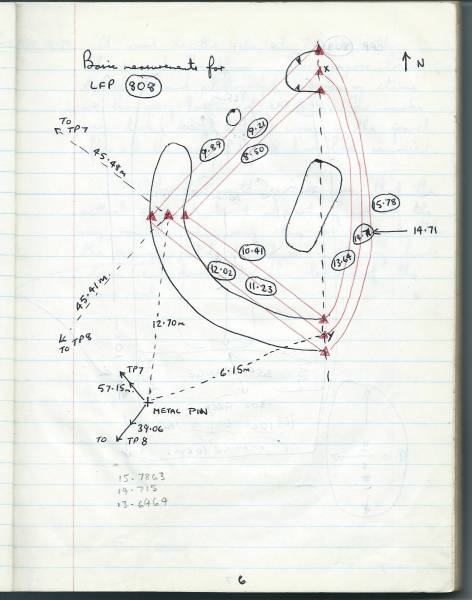 Basic measurements for
LFP 808
N
x
TO
TP7
45.48m
9.89
9.21
8.50
15.78
14.71
14.71
13.64
10.41
12.02
11.23
45.41m.
TO
TP8
12.70m
y
6.15m
TP7
57.15m
METAL PIN
39.06
TO TP8
15.7863
14.715
13.6464
6